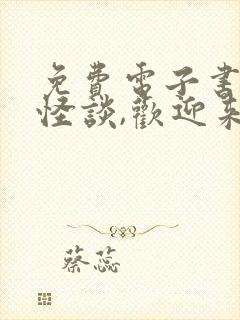 免費電子書
怪談,歡迎來
蔡蕊